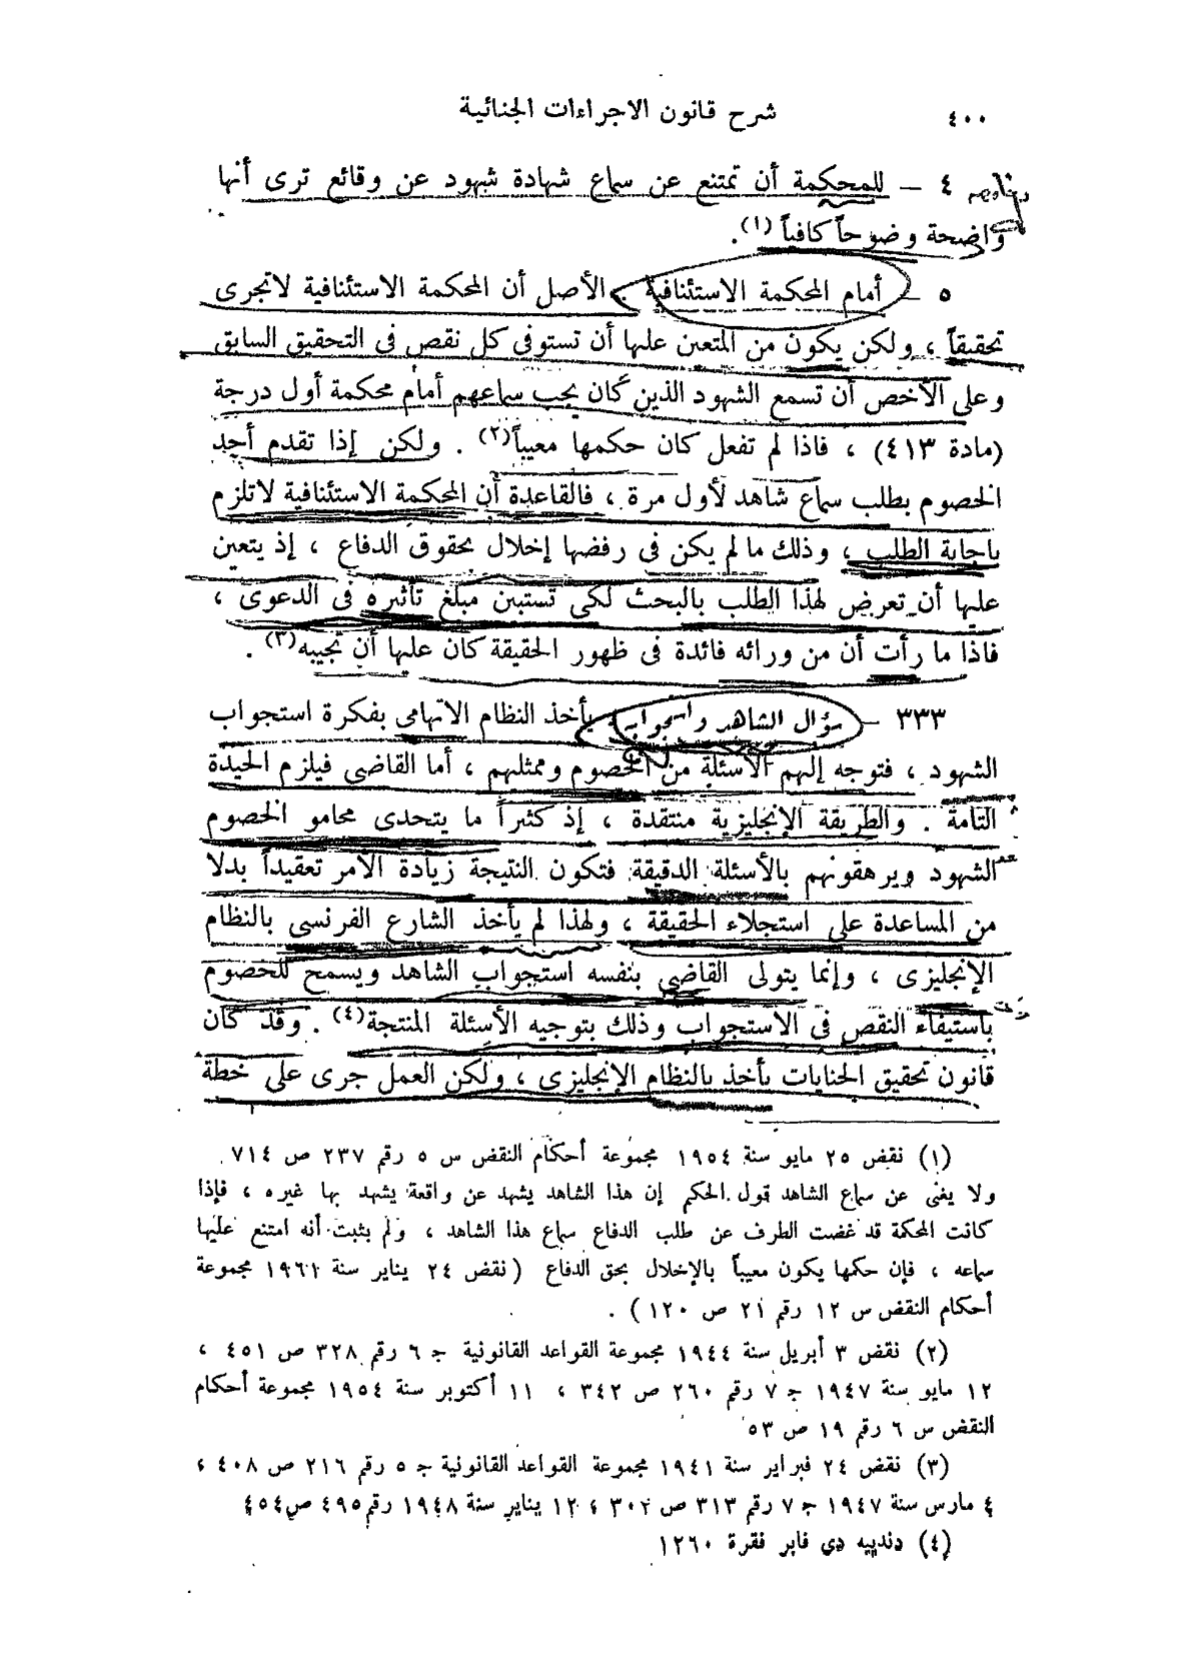 ٤٠٠
شرح قانون الاجراءات الجنائية
٤ — للمحكمة أن تمتنع عن سماع شهادة شهود عن وقائع ترى أنها
واضحة وضوحاً كافياً (١).
٥ — أمام المحكمة الاستئنافية . الأصل أن المحكمة الاستئنافية لاتجرى
تحقيقاً ، ولكن يكون من المتعين عليها أن تستوفى كل نقص فى التحقيق السابق
وعلى الأخص أن تسمع الشهود الذين كان يجب سماعهم أمام محكمة أول درجة
(مادة ٤١٣) ، فاذا لم تفعل كان حكمها معيباً(٢) . ولكن إذا تقدم أحد
الخصوم بطلب سماع شاهد لأول مرة ، فالقاعدة أن المحكمة الاستئنافية لاتلزم
باجابة الطلب ، وذلك مالم يكن فى رفضها إخلال بحقوق الدفاع ، إذ يتعين
عليها أن تعرض لهذا الطلب بالبحث لكى تستبين مبلغ تأثيره فى الدعوى ،
فاذا ما رأت أن من ورائه فائدة فى ظهور الحقيقة كان عليها أن تجيبه(٣) .
٣٣٣ — سؤال الشاهد واستجوابه . يأخذ النظام الاتهامى بفكرة استجواب
الشهود ، فتوجه إليهم الأسئلة من الخصوم وممثليهم ، أما القاضى فيلزم الحيدة
التامة . والطريقة الإنجليزية منتقدة ، إذ كثيراً ما يتحدى محامو الخصوم
الشهود ويرهقونهم بالأسئلة الدقيقة فتكون النتيجة زيادة الأمر تعقيداً بدلا
من المساعدة على استجلاء الحقيقة ، ولهذا لم يأخذ الشارع الفرنسى بالنظام
الإنجليزى ، وإنما يتولى القاضى بنفسه استجواب الشاهد ويسمح للخصوم
باستيفاء النقص فى الاستجواب وذلك بتوجيه الأسئلة المنتجة(٤) . وقد كان
قانون تحقيق الجنايات يأخذ بالنظام الإنجليزى ، ولكن العمل جرى على خطة
(١) نقض ٢٥ مايو سنة ١٩٥٤ مجموعة أحكام النقض س ٥ رقم ٢٣٧ ص ٧١٤ .
ولا يغنى عن سماع الشاهد قول الحكم إن هذا الشاهد يشهد عن واقعة يشهد بها غيره ، فإذا
كانت المحكمة قد غضت الطرف عن طلب الدفاع سماع هذا الشاهد ، ولم يثبت أنه امتنع عليها
سماعه ، فإن حكمها يكون معيباً بالإخلال بحق الدفاع (نقض ٢٤ يناير سنة ١٩٦١ مجموعة
أحكام النقض س ١٢ رقم ٢١ ص ١٢٠) .
(٢) نقض ٣ أبريل سنة ١٩٤٤ مجموعة القواعد القانونية ج ٦ رقم ٣٢٨ ص ٤٥١ ،
١٢ مايو سنة ١٩٤٧ ج ٧ رقم ٢٦٠ ص ٣٤٢ ، ١١ أكتوبر سنة ١٩٥٤ مجموعة أحكام
النقض س ٦ رقم ١٩ ص ٥٣
(٣) نقض ٢٤ فبراير سنة ١٩٤١ مجموعة القواعد القانونية ج ٥ رقم ٢١٦ ص ٤٠٨ ،
٤ مارس سنة ١٩٤٧ ج ٧ رقم ٣١٣ ص ٣٠٢ ، ١٢ يناير سنة ١٩٤٨ رقم ٤٩٥ ص ٤٥٤
(٤) دندييه دي فابر فقرة ١٢٦٠